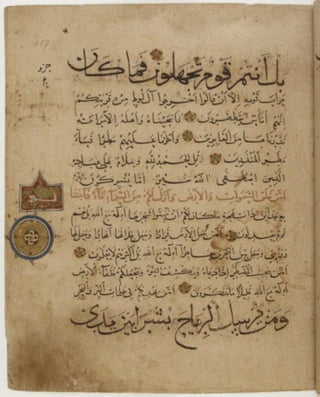 بل أنتم قوم تجهلون فما كان
جواب قومه إلا أن قالوا أخرجوا آل لوط من قريتكم
إنهم أناس يتطهرون فأنجيناه وأهله إلا امرأته
قدرناها من الغابرين وأمطرنا عليهم مطرا فساء
مطر المنذرين قل الحمد لله وسلام على عباده
الذين اصطفى آلله خير أما يشركون
أمن خلق السموات والأرض وأنزل لكم من السماء ماء فأنبتنا
به حدائق ذات بهجة ما كان لكم أن تنبتوا شجرها أإله مع الله بل هم
قوم يعدلون أمن جعل الأرض قرارا وجعل خلالها أنهارا وجعل لها
رواسي وجعل بين البحرين حاجزا أإله مع الله بل أكثرهم لا يعلمون
أمن يجيب المضطر إذا دعاه ويكشف السوء ويجعلكم خلفاء الأرض
أإله مع الله قليلا ما تذكرون أمن يهديكم في ظلمات البر والبحر
ومن يرسل الرياح بشرا بين يدي